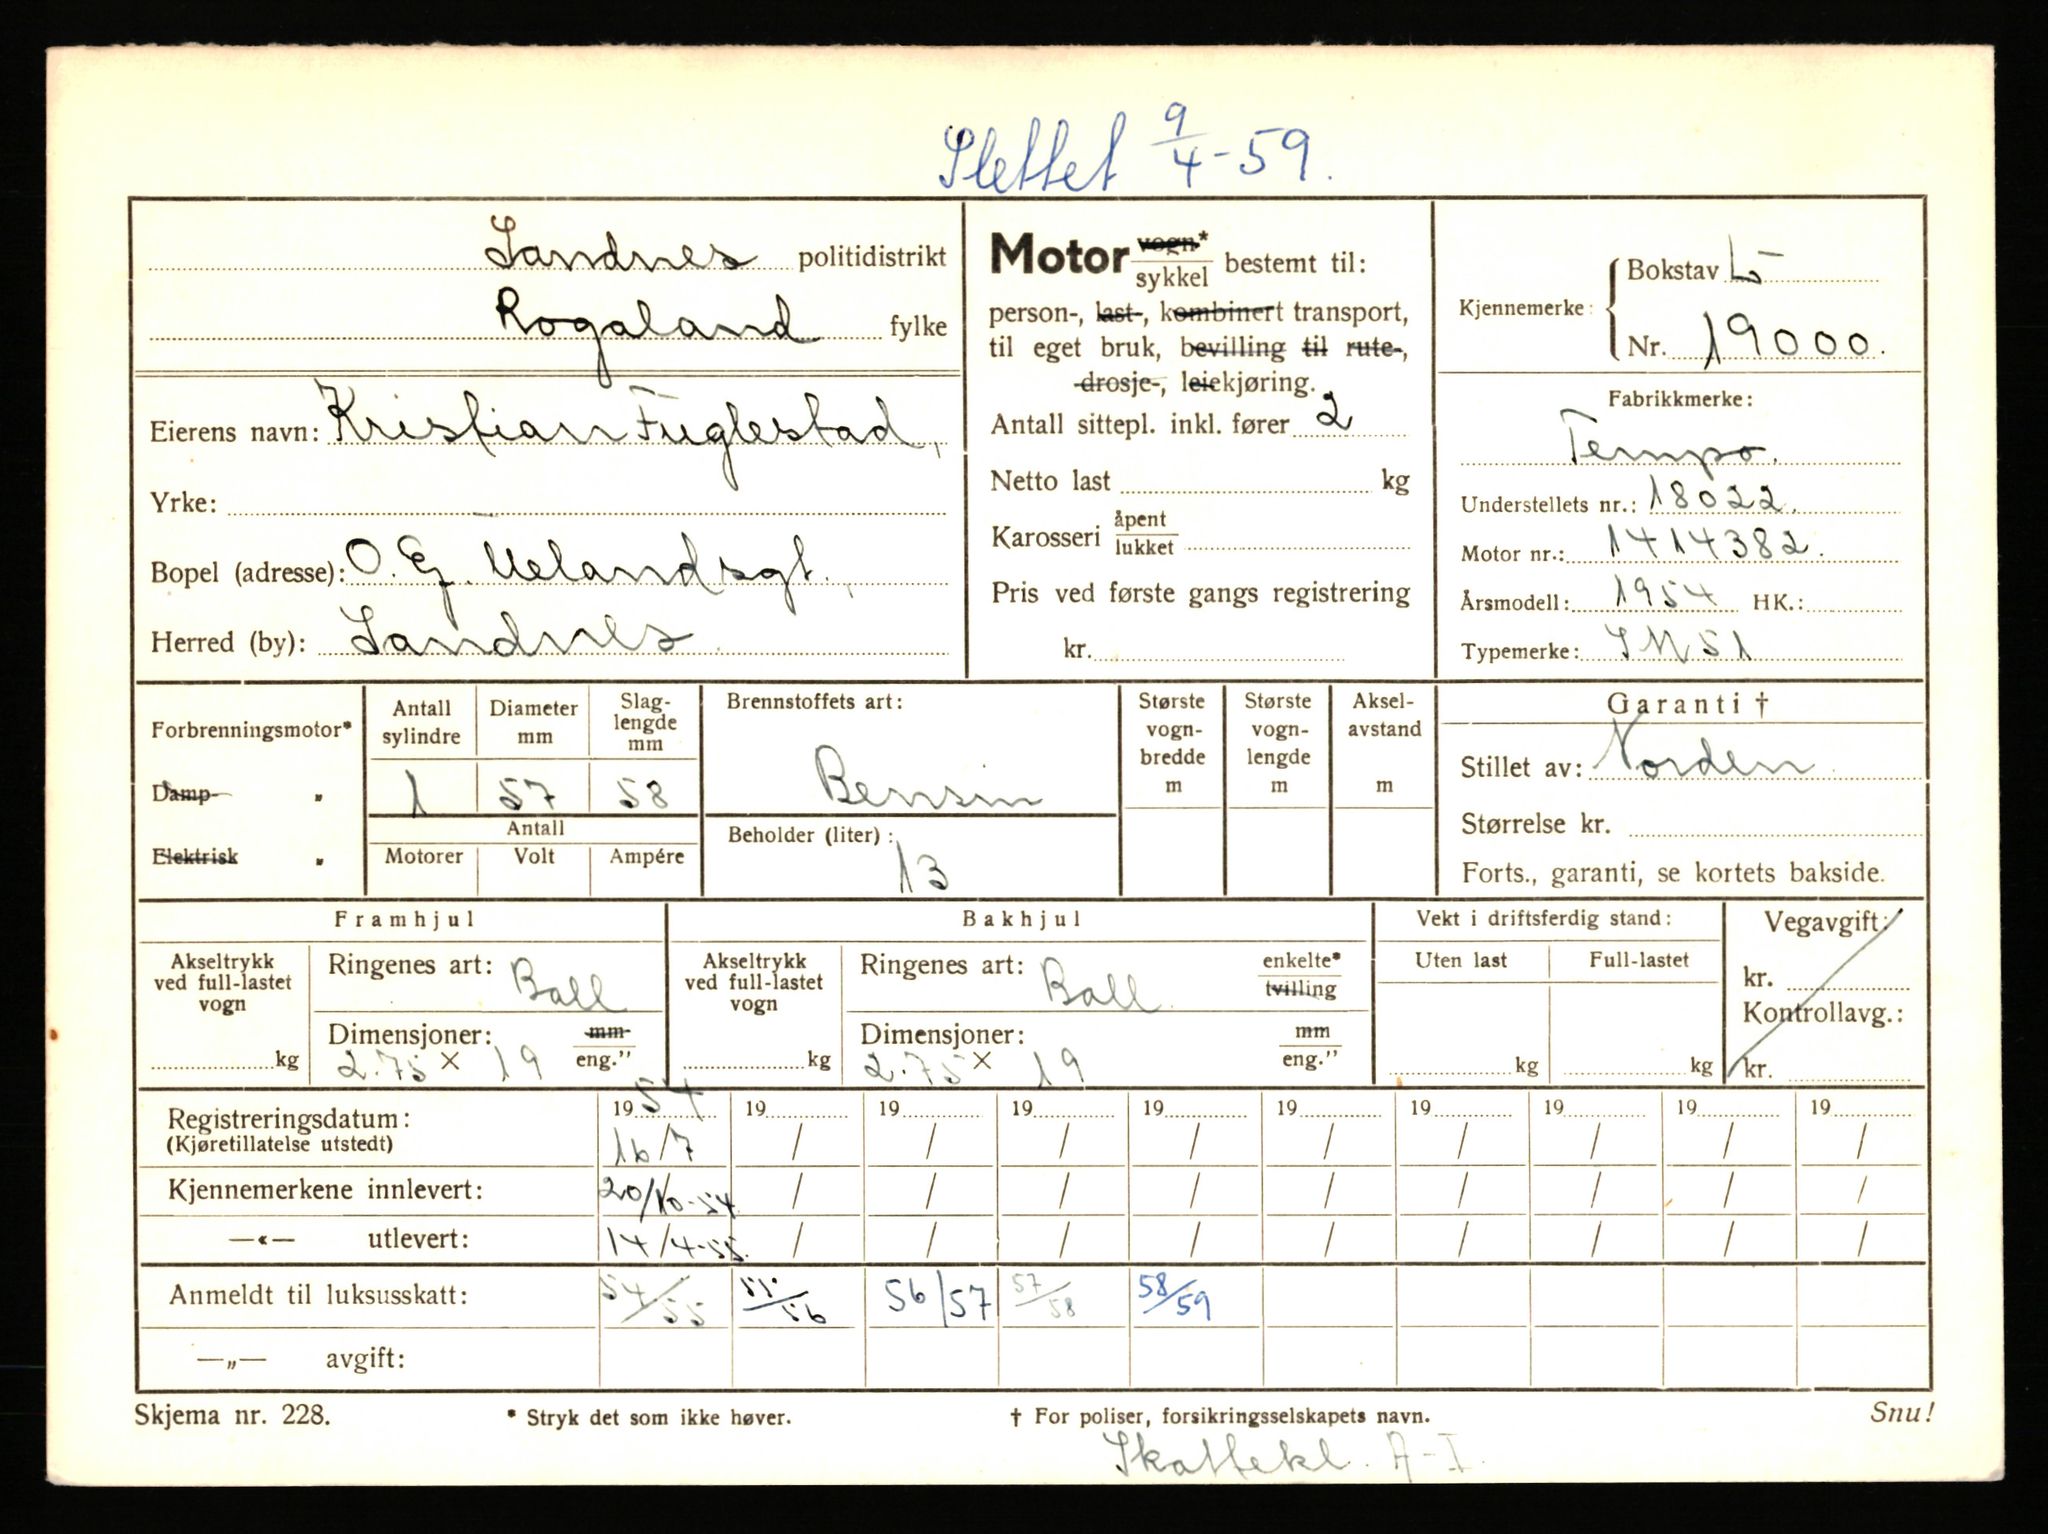 Slettet 9/4-59.
Sandnes politidistrikt
Rogaland fylke
Eierens navn: Kristian Fuglestad,
Yrke:
Bopel (adresse): O. G. Uelandsgt.,
Herred (by): Sandnes.
Motor vogn* sykkel bestemt til:
person-, last-, kombinert transport,
til eget bruk, bevilling til rute-,
drosje-, leiekjøring.
Antall sittepl. inkl. fører 2
Netto last kg
Karosseri åpent lukket
Pris ved første gangs registrering
kr.
Kjennemerke: Bokstav L
Nr. 19000.
Fabrikkmerke:
Tempo.
Understellets nr.: 18022.
Motor nr.: 1414382.
Årsmodell: 1954 HK.:
Typemerke: SM 51
Forbrenningsmotor*
Damp- "
Elektrisk "
Antall sylindre
1
Diameter mm
57
Slag-
lengde
mm
58
Antall
Motorer Volt Ampére
Brennstoffets art:
Bensin
Beholder (liter):
13
Største
vogn-
bredde
m
Største
vogn-
lengde
m
Aksel-
avstand
m
Garanti †
Stillet av: Norden
Størrelse kr.
Forts., garanti, se kortets bakside.
Framhjul
Akseltrykk
ved full-lastet
vogn
kg
Ringenes art: Ball
Dimensjoner: mm eng."
2.75 x 19
Bakhjul
Akseltrykk
ved full-lastet
vogn
kg
Ringenes art: Ball enkelte* tvilling
Dimensjoner: mm eng."
2.75 x 19
Vekt i driftsferdig stand:
Uten last Full-lastet
kg kg
Vegavgift:
kr.
Kontrollavg.:
kr.
Registreringsdatum: 1954 19 19 19 19 19 19 19 19 19
(Kjøretillatelse utstedt) 16/7 / / / / / / / / /
Kjennemerkene innlevert: 20/10-54 / / / / / / / / /
—«— utlevert: 14/4-55. / / / / / / / / /
Anmeldt til luksusskatt: 54/55 55/56 56/57 57/58 58/59
—„— avgift:
Skjema nr. 228. * Stryk det som ikke høver. † For poliser, forsikringsselskapets navn. Snu!
Skattekl. A-I